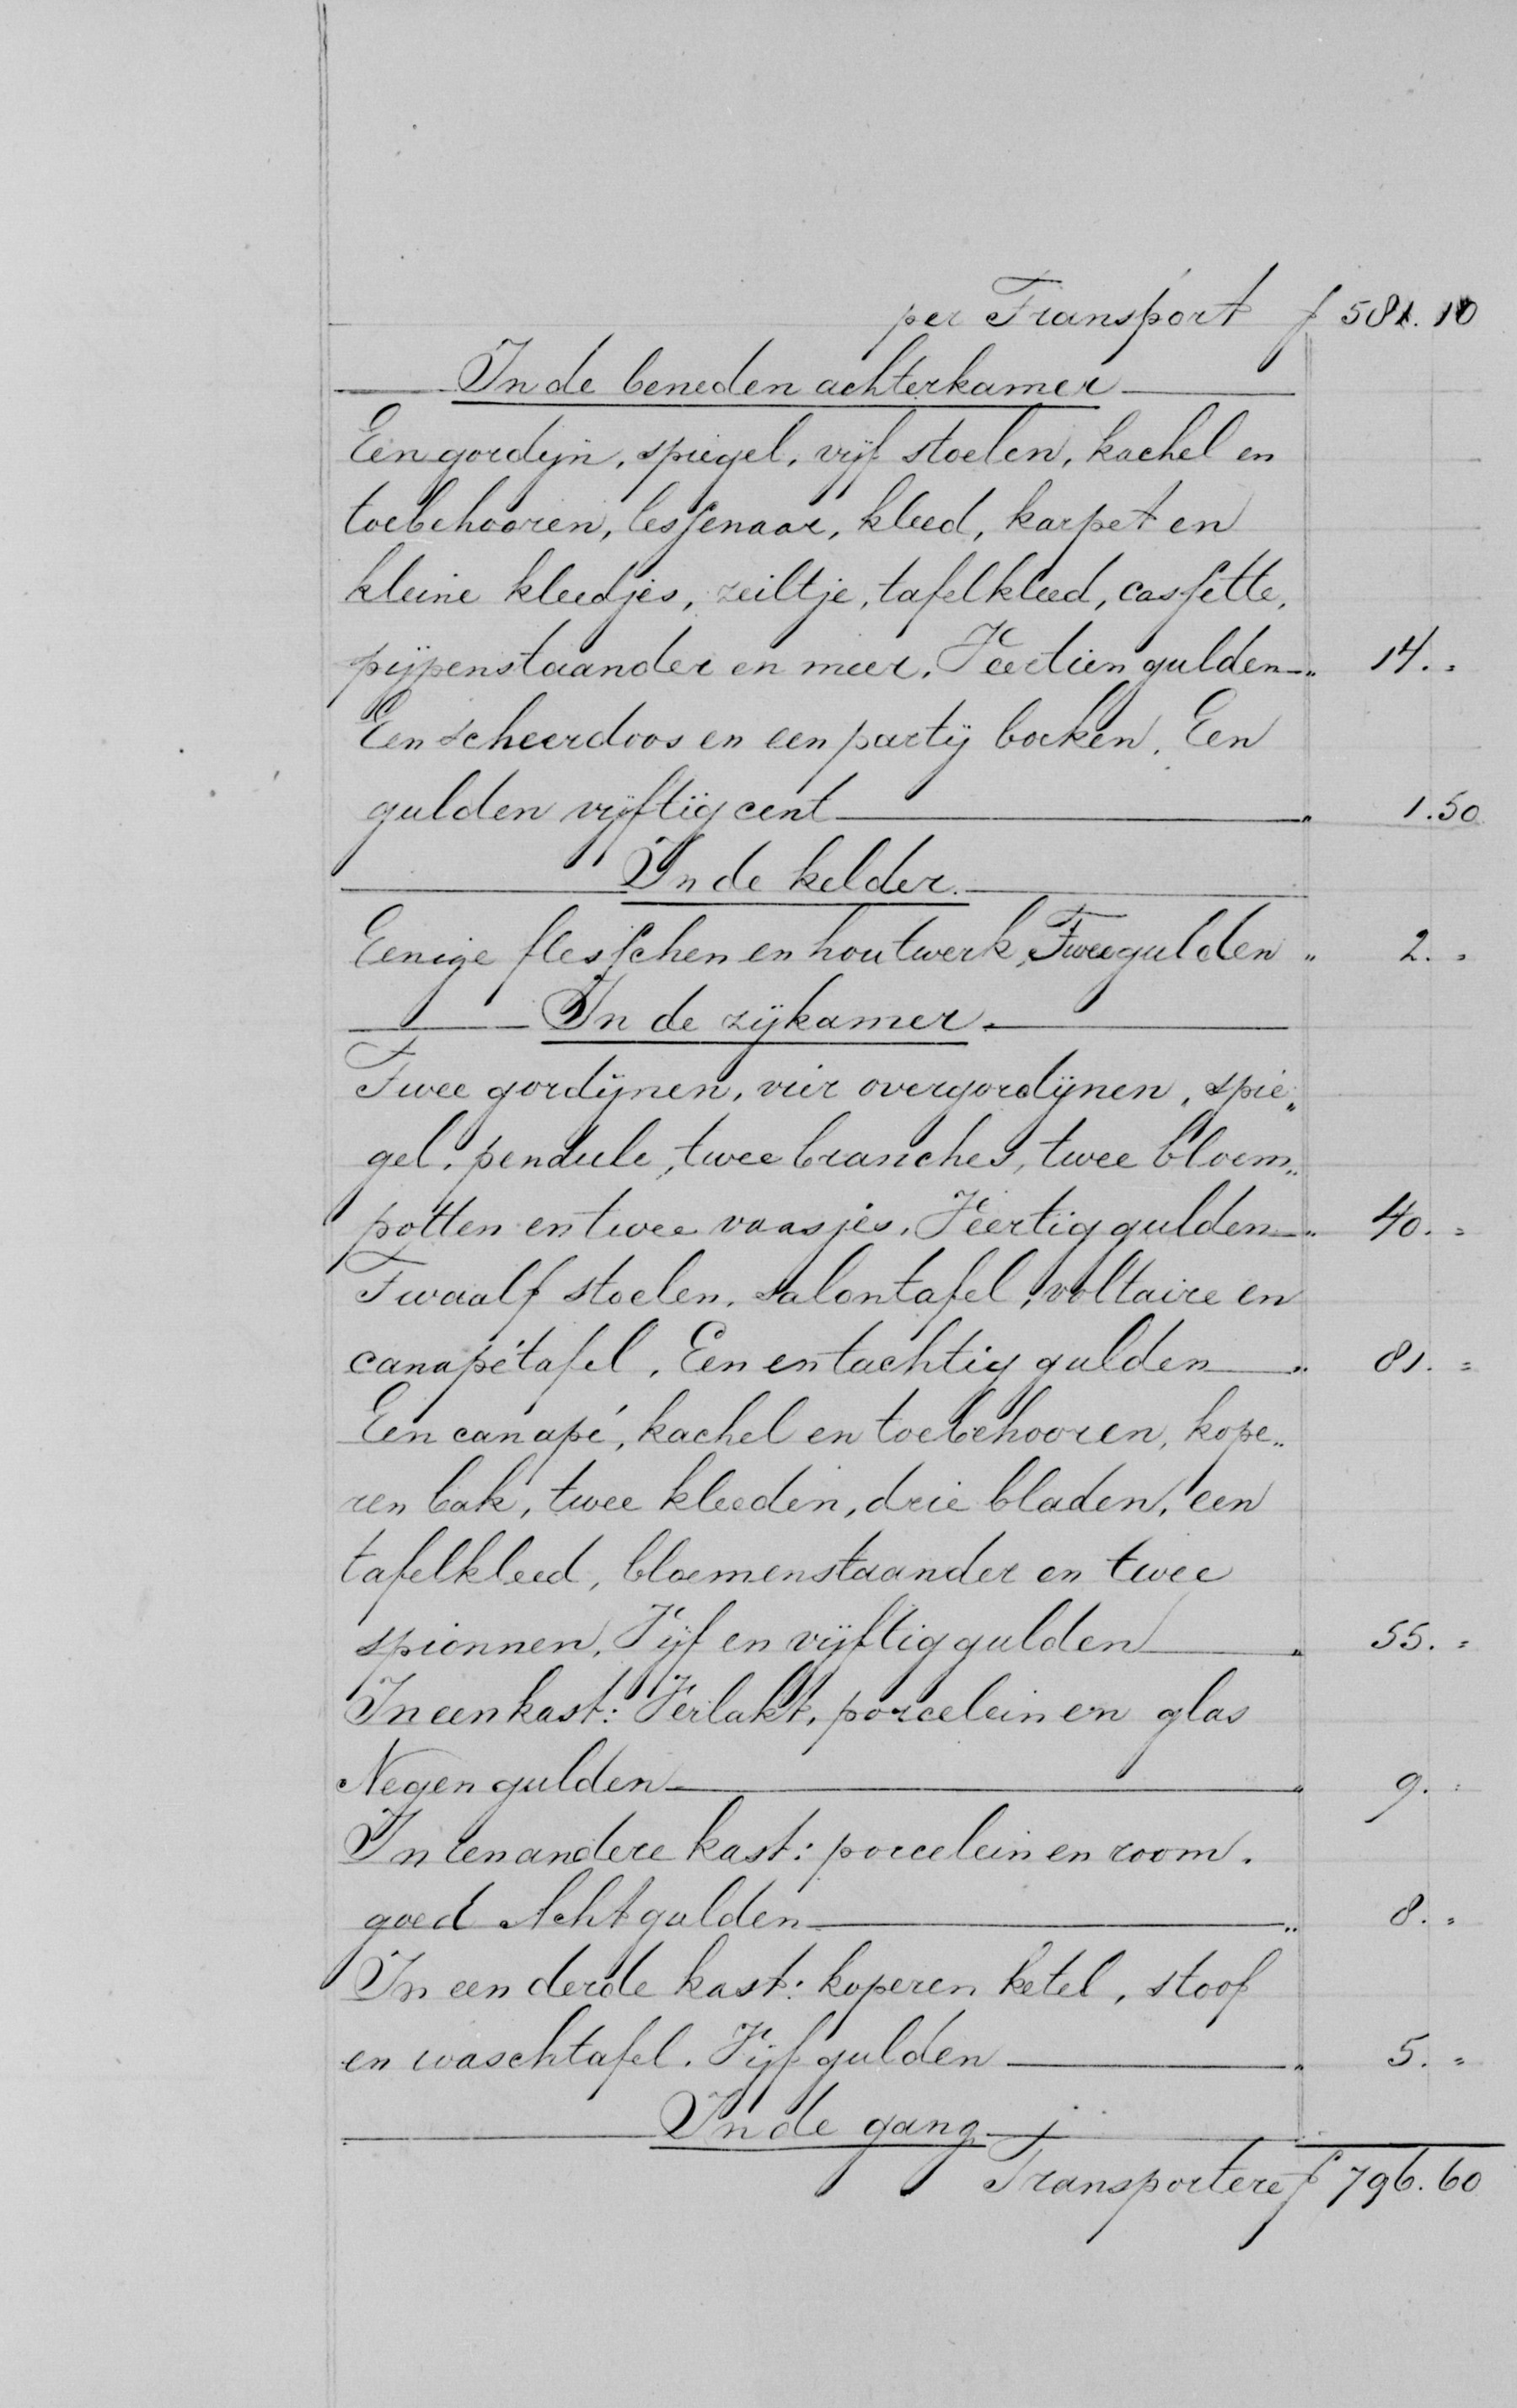 per Transport f 581.10
In de beneden achterkamer
Een gordijn, spiegel, vijf stoelen, kachel en
toebehooren, lessenaar, kleed, karpet en
kleine kleedjes, zeiltje, tafelkleed, cassette,
pijpenstaander en meer. Veertien gulden „ 14. =
Een scheerdoos en een partij boeken. Een
gulden vijftig cent „ 1.50
In de kelder.
Eenige flesschen en houtwerk, Twee gulden „ 2. =
In de zijkamer.
Twee gordijnen, vier overgordijnen, spie„
gel, pendule, twee branches, twee bloem„
potten en twee vaasjes. Veertig gulden „ 40. =
Twaalf stoelen, salontafel, voltaire en
canapétafel. Een en tachtig gulden „ 81. =
Een canapé, kachel en toebehooren, kope„
ren bak, twee kleeden, drie bladen, een
tafelkleed, bloemenstaander en twee
spionnen. Vijf en vijftig gulden „ 55. =
In een kast: Verlakt, porcelein en glas
Negen gulden „ 9. =
In een andere kast: porcelein en room.
goed Acht gulden „ 8. =
In een derde kast: koperen ketel, stoof
en waschtafel. Vijf gulden „ 5. =
In de gang
Transportere f 796.60